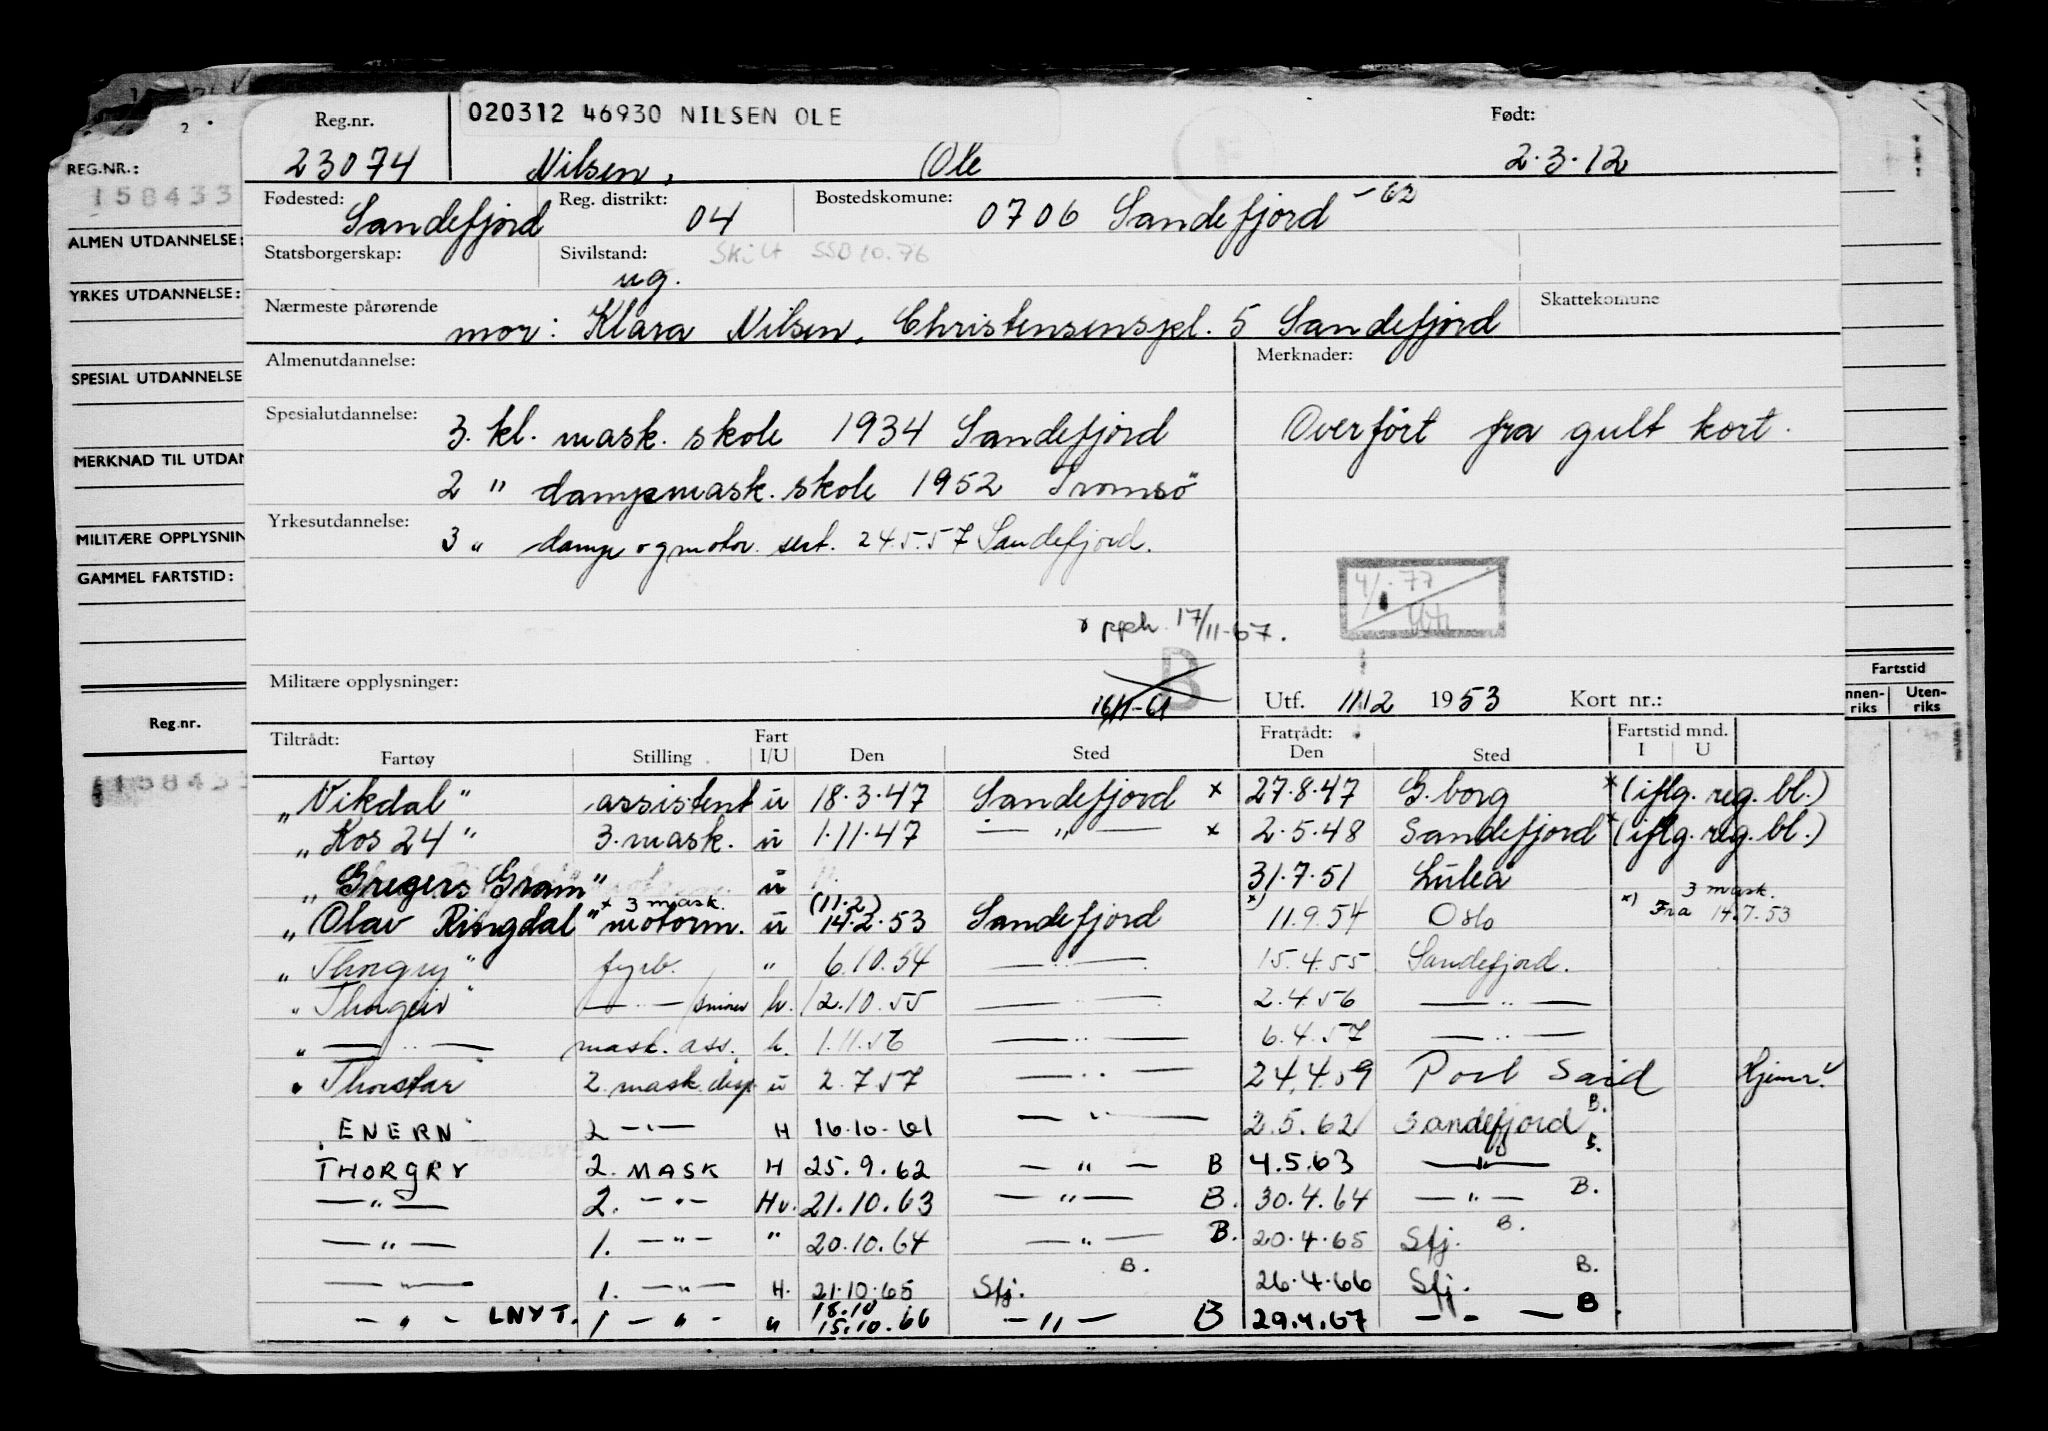 020312 46930 NILSEN OLE
Reg.nr. Født:
23074 Nilsen, Ole 2.3.12
Fødested: Sandefjord Reg. distrikt: 04 Bostedskomune: 0706 Sandefjord -62
Statsborgerskap: Sivilstand: ug. Skilt SSB 10.76
Nærmeste pårørende mor: Klara Nilsen, Christensensgt. 5 Sandefjord Skattekomune
Almenutdannelse: Merknader:
Spesialutdannelse: 3. kl. mask. skole 1934 Sandefjord Overført fra gult kort.
2 " dampmask. skole 1952 Tromsö
Yrkesutdannelse: 3 " damp og motor. sert. 24.5.57 Sandefjord.
4/1-77
17/11-67.
B
Militære opplysninger: 16/11-61 Utf. 11/2 1953 Kort nr.:
Tiltrådt: Fart Fratrådt: Fartstid mnd.
Fartøy Stilling I/U Den Sted Den Sted I U
"Vikdal" assistent u 18.3.47 Sandefjord x 27.8.47 G.borg x (iflg. reg. bl.)
"Kos 24" 3. mask. u 1.11.47 — " — x 2.5.48 Sandefjord x (iflg. reg. bl.)
"Gregers Gram" u 31.7.51 Luleå
x 3 mask. (11.2) x) x) 3 mask.
"Olav Ringdal" motorm. u 14.2.53 Sandefjord 11.9.54 Oslo Fra 14.7.53
"Thorgry" fyrb. " 6.10.54 — " — 15.4.55 Sandefjord.
"Thorgeir" — " — / smører h. 12.10.55 — " — 2.4.56 — " —
" — " — mask. ass. h. 1.11.56 — " — 6.4.57 — " —
" Thorstar 2. mask. disp. u 2.7.57 — " — 24.4.59 Port Said Hjemr.
"ENERN" 2 — " — H 16.10-61 — " — 2.5.62 Sandefjord B.
THORGRY 2. MASK H 25.9.62 — " — B 4.5.63 — " — B.
— " — 2. — " — Hv. 21.10.63 — " — B. 30.4.64 — " — B.
— " — 1. — " — " 20.10.64 — " — B. 20.4.65 Sfj. B.
— " — 1. — " — H. 21.10.65 Sfj. B. 26.4.66 Sfj. B.
— " — LNYT. 1 — " — " 18.10 15.10.66 — " — B 29.4.67 — " — B.
REG.NR.:
158433
ALMEN UTDANNELSE:
YRKES UTDANNELSE:
SPESIAL UTDANNELSE
MERKNAD TIL UTDAN
MILITÆRE OPPLYSNIN
GAMMEL FARTSTID:
Reg.nr.
158433
Fartstid
nnen-riks Uten-riks